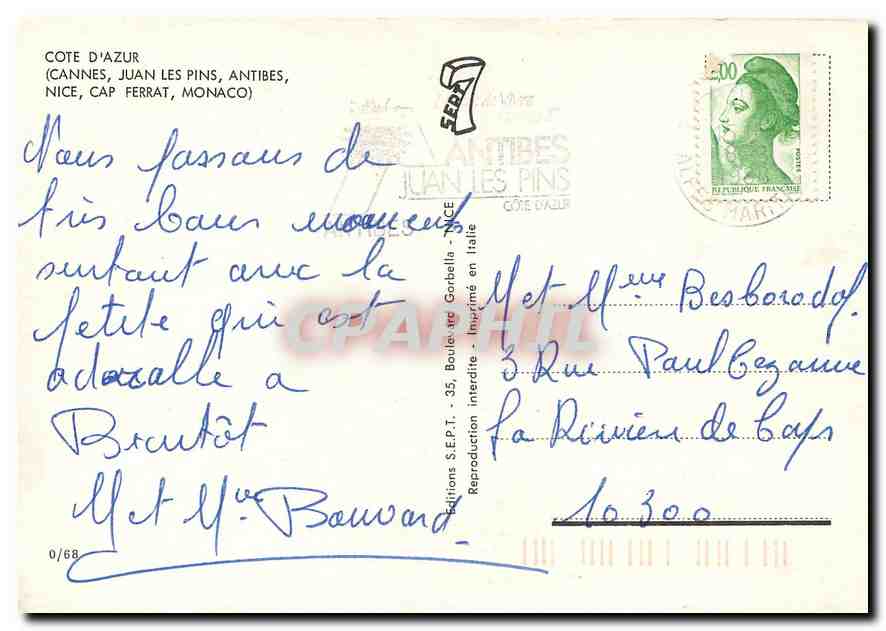 COTE D'AZUR
(CANNES, JUAN LES PINS, ANTIBES,
NICE, CAP FERRAT, MONACO)
Nous passons de
très bons moments
surtout avec la
petite qui est
adorable a
Bientôt
M et Mme Bouvard
0/68
SEPT
ANTIBES
JUAN LES PINS
CÔTE D'AZUR
ANTIBES
Editions S.E.P.T. - 35, Boulevard Gorbella - NICE
Reproduction interdite - Imprimé en Italie
CPAPHIL
2,00
POSTES
REPUBLIQUE FRANÇAISE
M et Mme Besborodof
3 Rue Paul Cezanne
La Rivière de Corps
10300